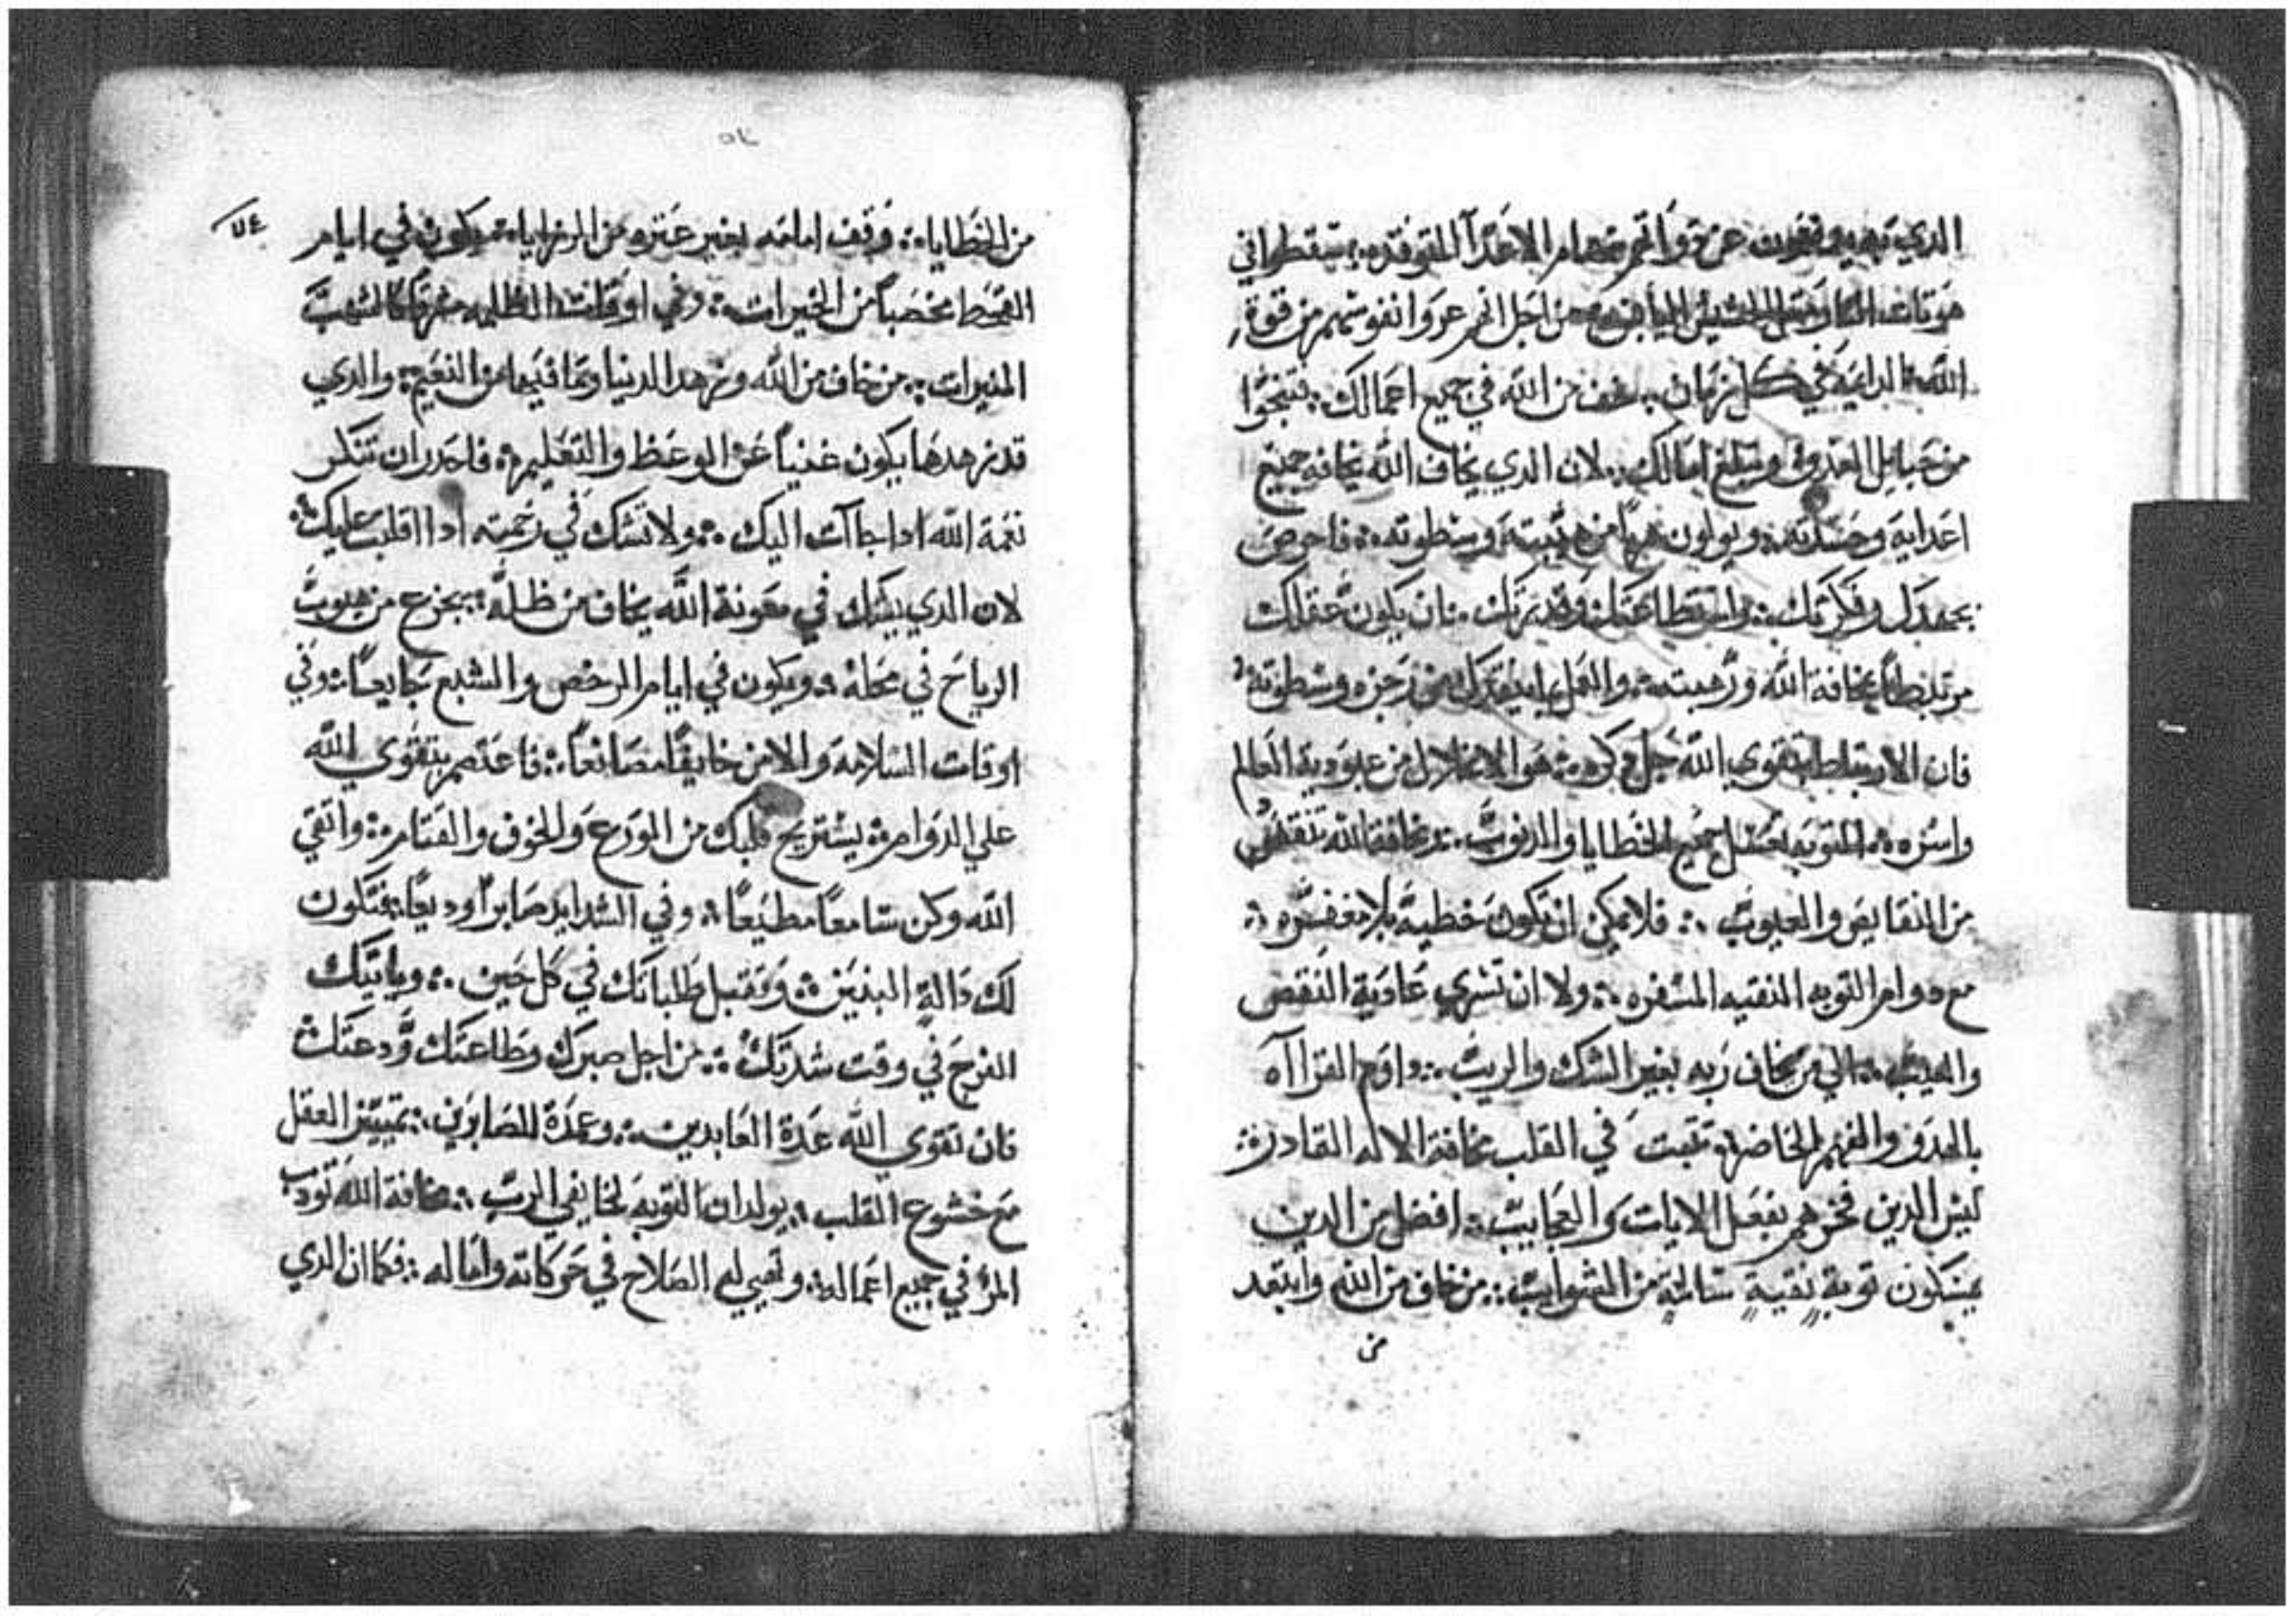 الدي بهم يدفعون عن دواتهم سهام الاعدآ المتوقده : سقطوا في
من اجل انهم عروا نفوسهم من قوة
الله الدايمه في كل زمان : خف من الله في جميع اعمالك : فتنجوا
من حبايل العدو وتبلغ امالك : لان الدي يخاف الله يخافه جميع
اعدايه وحسدته : ويولون هربا من هيبته وسطوته : فاحرص
بجهدك وفكرتك : واستطاعتك وقدرتك : بان يكون عقلك
مرتبطاً بمخافة الله ورهبته : والعمل من زجره وسطوته :
فان الارتباط بتقوي الله جل دكره : هو الانحلال من عبودية العالم
واسره : التوبه تغسل جميع الخطايا والدنوب : ومخافة الله تنقي
من النقايص والعيوب : فلا يمكن ان تكون خطية بلا مغفره :
مع دوام التوبه النقيه المسفره : ولا ان تسري عادية النقص
والعيب : الي من يخاف ربه بغير الشك والريب : داوم القرااه
بالهدو والفهم الخاضره تتبت في القلب مخافة الاله القادره :
ليس الدين فخرهم بفعل الايات والعجايب : افضل من الدين
يمسكون توبة نقية سالمة من الشوايب : من خاف من الله وابتعد
من
٧٤
من الخطايا : وقف امامه بغير عتره من الرزايا : يكون في ايام
القحط مخصباً من الخيرات : وفي اوقات الظلمه مشرقا كالشهب
المنيرات : من خاف من الله وزهد الدنيا وما فيها من النعيم : والدي
قد زهدها يكون غنياً عن الوعظ والتعليم : فاحدر ان تنكر
نعمة الله ادا جاآت اليك : ولا تشك في رحمته ادا اقلبت عليك :
لان الدي يشك في معونة الله يخاف من ظله : يجزع من هبوب
الرياح في محله : ويكون في ايام الرخص والشبع جايعاً : وفي
اوقات السلامه والامن خايفاً مصانعاً : فاعتصم بتقوي الله
علي الدوام : يستريح قلبك من الورع والخوف والقتام : واتقي
الله وكن سامعاً مطيعاً : وفي الشدايد صابراً وديعاً : فتكون
لك دالة البنين : وتقبل طلباتك في كل حين : وياتيك
الفرج في وقت شدتك : من اجل صبرك وطاعتك ودعتك :
فان تقوي الله عدة العابدين : وعمدة للصابرين : تمييز العقل
مع خشوع القلب : يولدان التوبه لخايفي الرب : مخافة الله تودب
المرؤ في جميع اعماله : وتهيي له الصلاح في حركاته واماله : فكما ان الدي